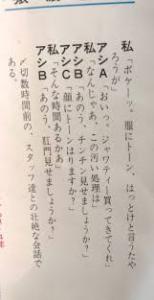 私「ボケーッ。服にトーン、はっとけと言うたや
ろうが」
アシA「おいっ。ジャワティー買ってきてくれ」
私「なんじゃあ、この汚い処理は」
アシB「あのう、チンチン見せましょうか?」
アシC「顔にトーンはりますか?」
私「そんな時間あるかあ」
アシB「あのう、肛門見せましょうか?」
〆切数時間前の、スタッフ達との壮絶な会話で
ある。